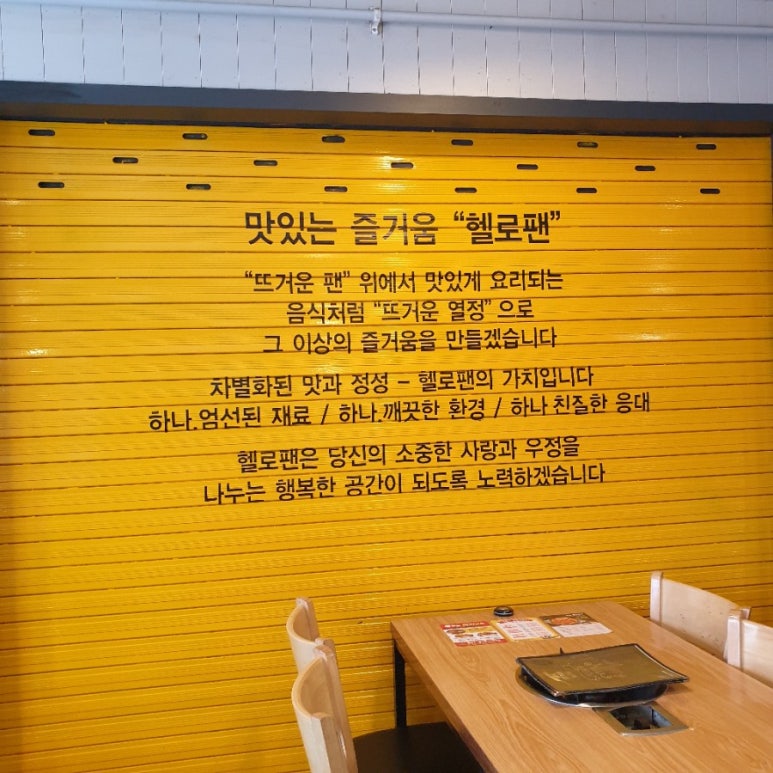 맛있는 즐거움 “헬로팬”
“뜨거운 팬” 위에서 맛있게 요리되는
음식처럼 “뜨거운 열정” 으로
그 이상의 즐거움을 만들겠습니다
차별화된 맛과 정성 – 헬로팬의 가치입니다
하나.엄선된 재료 / 하나.깨끗한 환경 / 하나 친절한 응대
헬로팬은 당신의 소중한 사랑과 우정을
나누는 행복한 공간이 되도록 노력하겠습니다